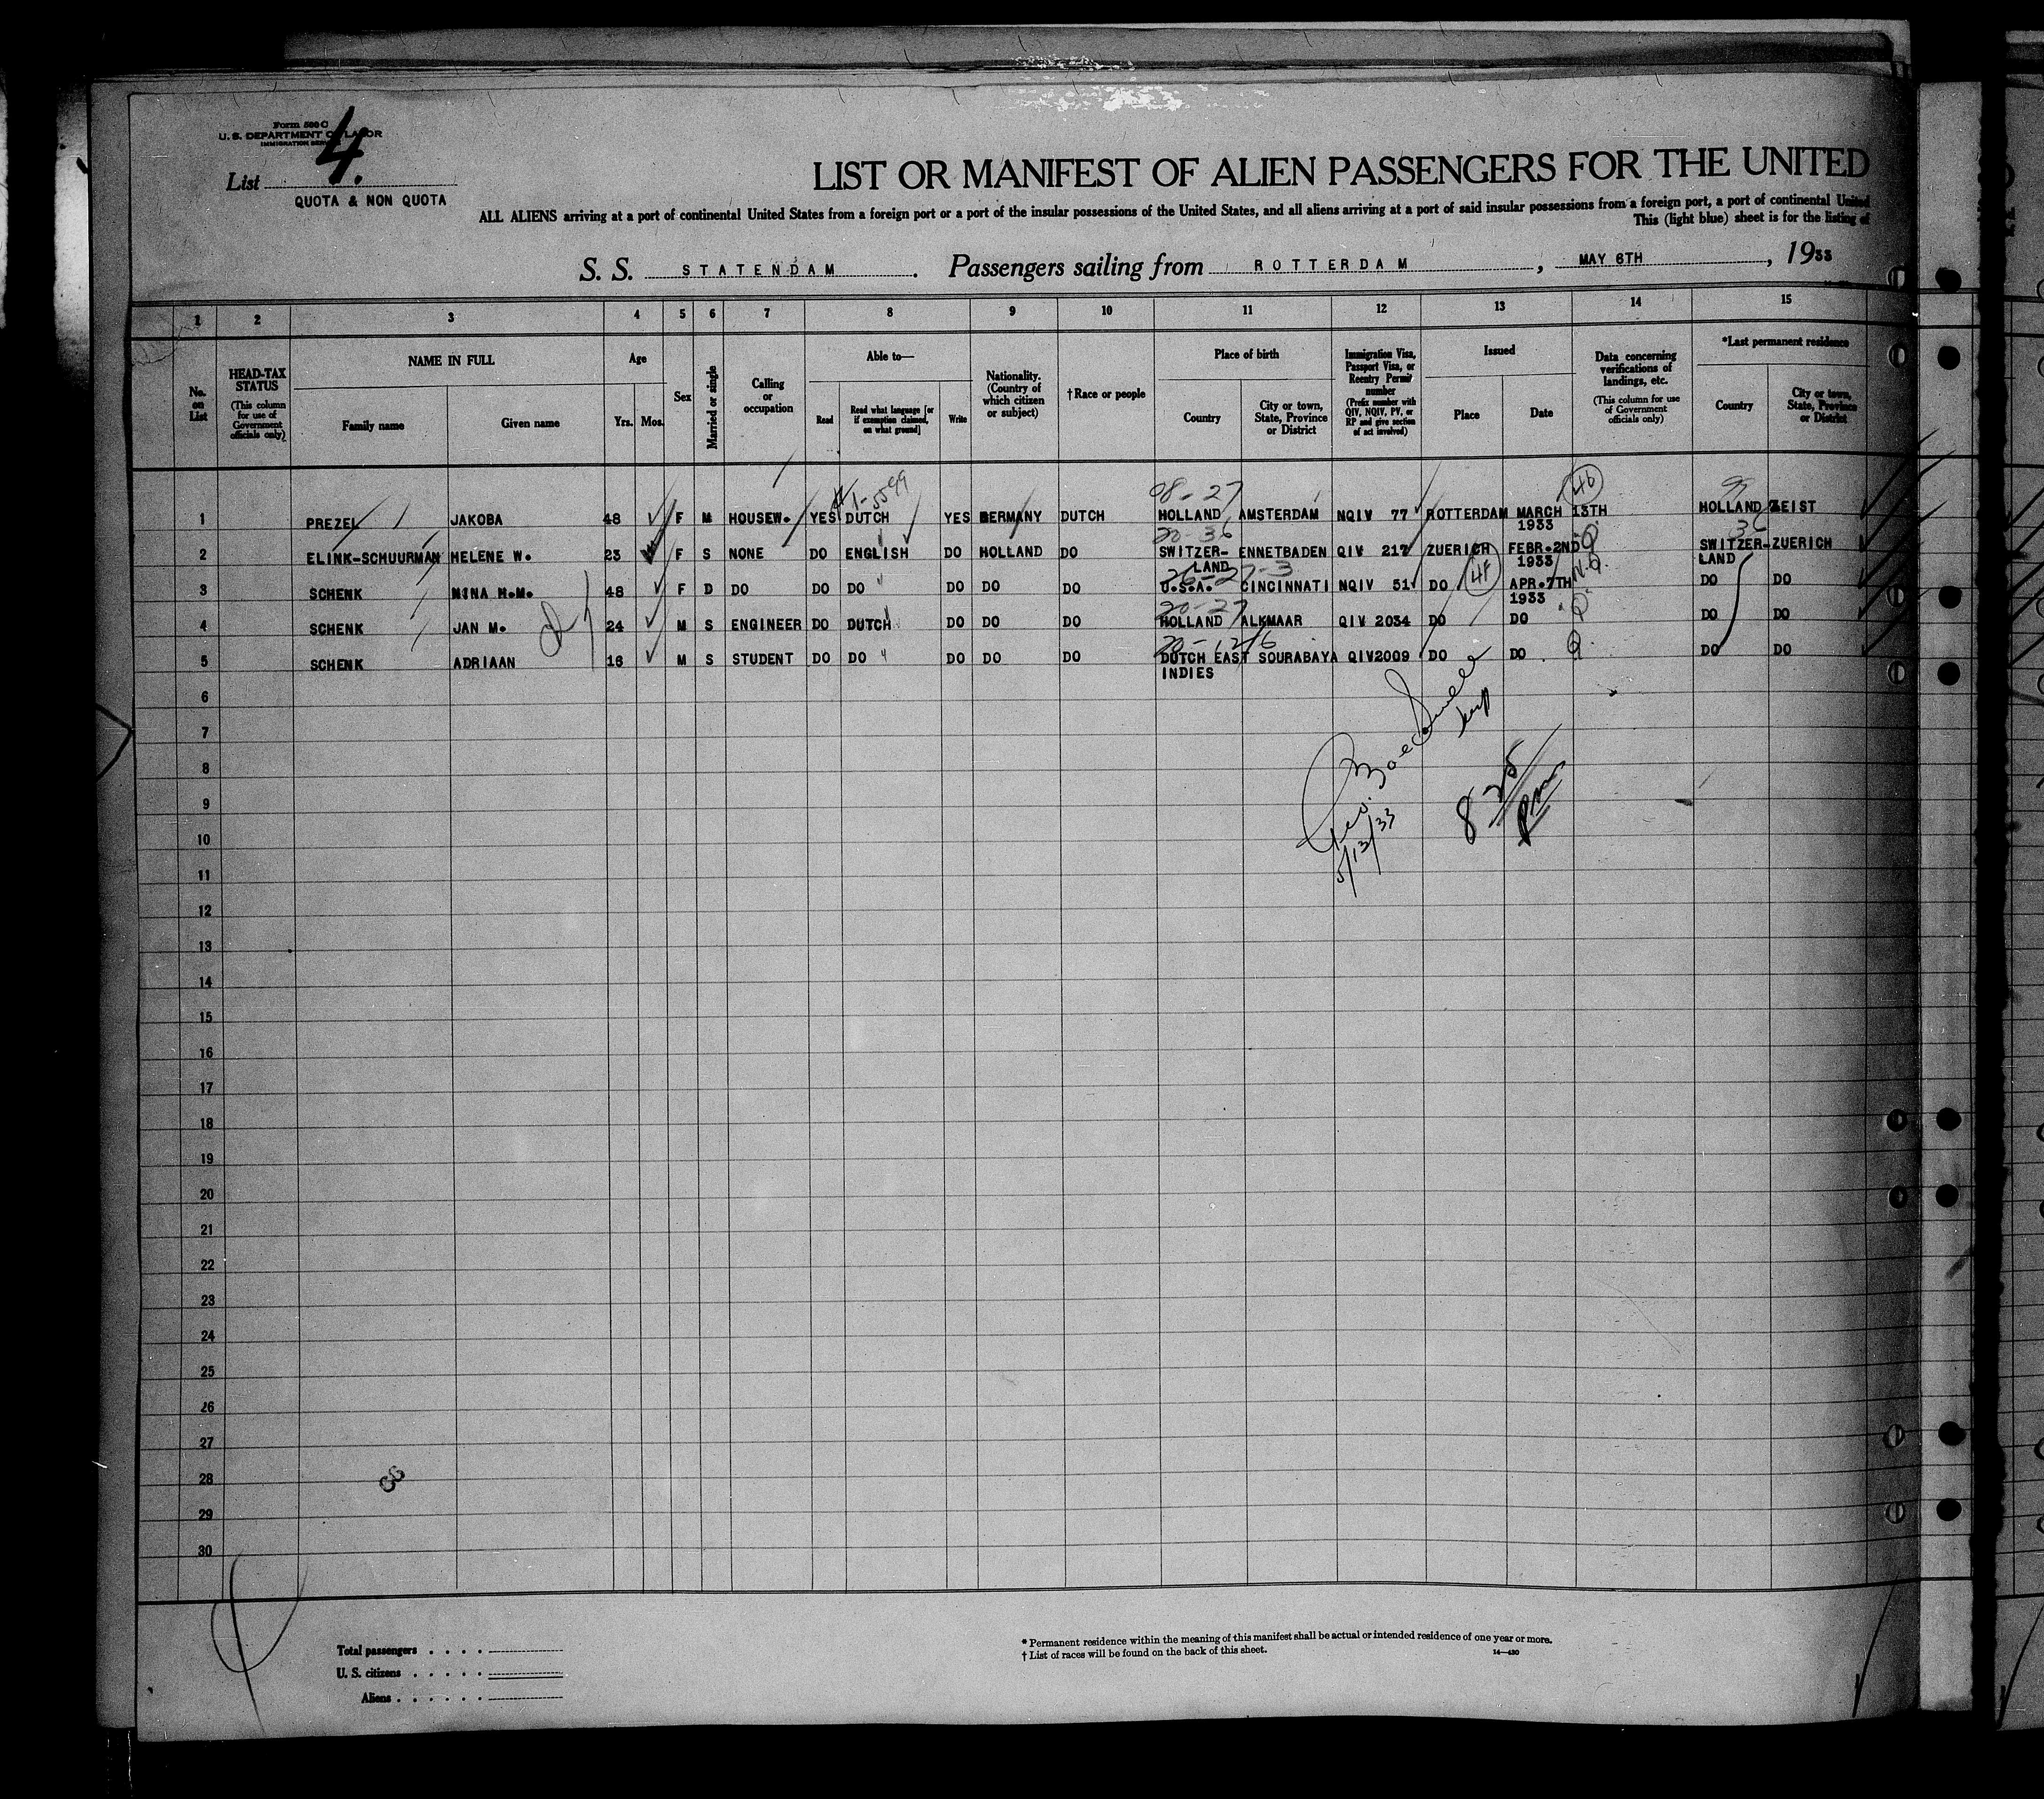 Form 500 C
U. S. DEPARTMENT OF LABOR
IMMIGRATION SERVICE
4.
List
QUOTA & NON QUOTA
LIST OR MANIFEST OF ALIEN PASSENGERS FOR THE UNITED
ALL ALIENS arriving at a port of continental United States from a foreign port or a port of the insular possessions of the United States, and all aliens arriving at a port of said insular possessions from a foreign port, a port of continental United
This (light blue) sheet is for the listing of
S. S. STATENDAM. Passengers sailing from ROTTERDAM, MAY 6TH, 1933
1 2 3 4 5 6 7 8 9 10 11 12 13 14 15
No. on List
HEAD-TAX STATUS (This column for use of Government officials only)
NAME IN FULL
Family name Given name
Age
Yrs. Mos.
Sex
Married or single
Calling or occupation
Able to—
Read
Read what language [or if exemption claimed, on what ground]
Write
Nationality. (Country of which citizen or subject)
† Race or people
Place of birth
Country
City or town, State, Province or District
Immigration Visa, Passport Visa, or Reentry Permit number (Prefix number with QIV, NQIV, PV, or RP and give section of act involved)
Issued
Place Date
Data concerning verifications of landings, etc. (This column for use of Government officials only)
*Last permanent residence
Country
City or town, State, Province or District
08-27 4b 99
1 PREZEL JAKOBA 48 F M HOUSEW. YES DUTCH YES GERMANY DUTCH HOLLAND AMSTERDAM NQIV 77 ROTTERDAM MARCH 13TH 1933 HOLLAND ZEIST
20-36 36
2 ELINK-SCHUURMAN HELENE W. 23 F S NONE DO ENGLISH DO HOLLAND DO SWITZER-LAND ENNETBADEN QIV 217 ZUERICH FEBR.2ND 1933 Q SWITZER-LAND ZUERICH
26-27-3
3 SCHENK MINA H.M. 48 F D DO DO DO " DO DO DO U.S.A. CINCINNATI NQIV 51 DO 4f APR.7TH 1933 N.Q. DO DO
20-27
4 SCHENK JAN M. 24 M S ENGINEER DO DUTCH DO DO DO HOLLAND ALKMAAR QIV 2034 DO DO Q DO DO
5 SCHENK ADRIAAN 16 M S STUDENT DO DO " DO DO DO DUTCH EAST INDIES SOURABAYA QIV2009 DO DO Q DO DO
6
7
8
9
10
5/13/33
8 25/pm
11
12
13
14
15
16
17
18
19
20
21
22
23
24
25
26
27
28
29
30
Total passengers
U. S. citizens
Aliens
* Permanent residence within the meaning of this manifest shall be actual or intended residence of one year or more.
† List of races will be found on the back of this sheet.
14—430